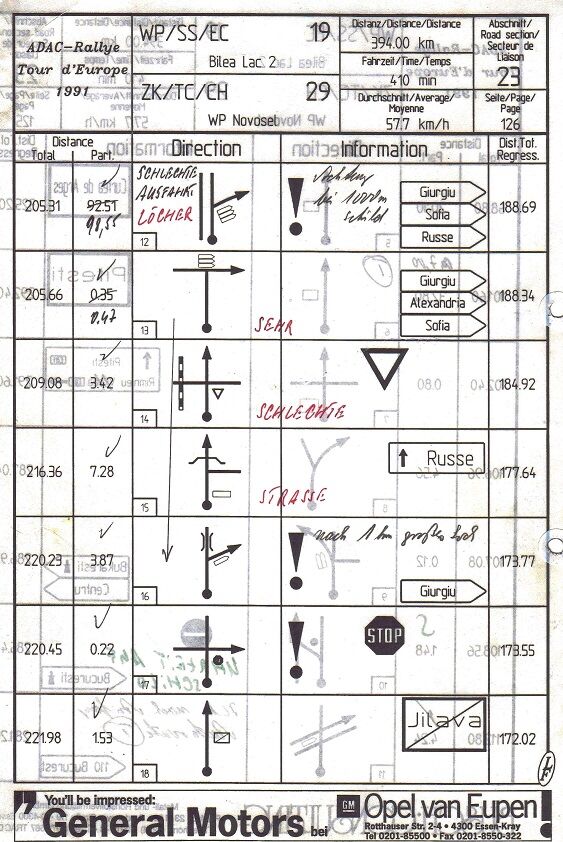 ADAC-Rallye
Tour d'Europe
1991
WP/SS/EC 19
Bilea Lac 2
ZK/TC/CH 29
WP Novosel
Distanz/Distance/Distance
394.00 km
Fahrzeit/Time/Temps
410 min
Durchschnitt/Average/
Moyenne
57.7 km/h
Abschnitt/
Road section/
Secteur de
Liaison
23
Seite/Page/
Page
126
Distance
Total Part.
Direction
Information
Dist.Tot.
Regress.
205.31 92.51
98,55
SCHLECHTE
AUSFAHRT
LÖCHER
12
Achtung
bei 1000m
Schild
Giurgiu
Sofia
Russe
188.69
205.66 0.35
0.47
13
SEHR
Giurgiu
Alexandria
Sofia
188.34
209.08 3.42
14
SCHLECHTE
184.92
216.36 7.28
15
STRASSE
Russe
177.64
220.23 3.87
16
nach 1 km großes Loch
Giurgiu
173.77
220.45 0.22
17
STOP
173.55
221.98 1.53
18
Jilava
172.02
You'll be impressed:
General Motors bei
GM Opel van Eupen!
Rotthauser Str. 2-4 • 4300 Essen-Kray
Tel 0201-85500 • Fax 0201-8550-322